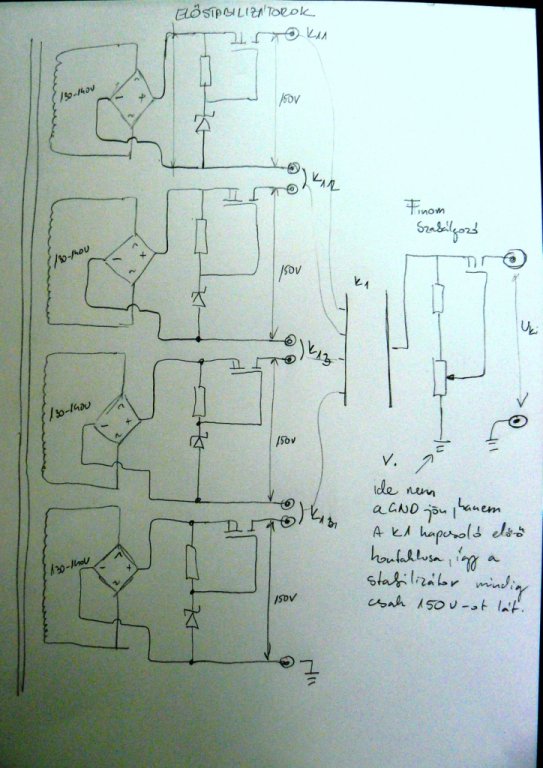 ELŐSTABILIZÁTOROK
K11
130-140V
150V
K12
Finom
szabályozó
130-140V
150V
K1
Uki
K13
130-140V
150V
V.
ide nem
a GND jön, hanem
A K1 kapcsoló előző
kontaktusa, így a
stabilizátor mindig
csak 150V-ot lát.
130-140V
150V